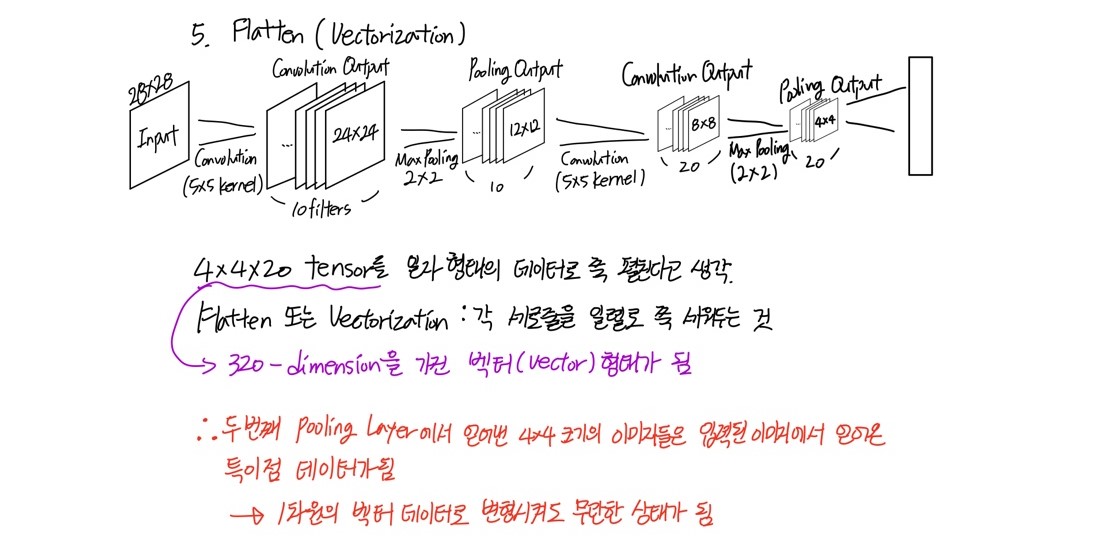 5. Flatten (Vectorization)
28×28
Input
Convolution
(5×5 kernel)
Convolution Output
...
24×24
10 filters
Max Pooling
2×2
Pooling Output
...
12×12
10
Convolution
(5×5 kernel)
Convolution Output
...
8×8
20
Max Pooling
(2×2)
Pooling Output
...
4×4
20
4×4×20 tensor를 일자 형태의 데이터로 쭉 펼친다고 생각.
Flatten 또는 Vectorization : 각 세로줄을 일렬로 쭉 세워두는 것
→ 320-dimension을 가진 벡터(vector) 형태가 됨
∴ 두번째 Pooling Layer에서 얻어낸 4×4 크기의 이미지들은 입력된 이미지에서 얻어온
특이점 데이터가 됨
→ 1차원의 벡터 데이터로 변형시켜도 무관한 상태가 됨